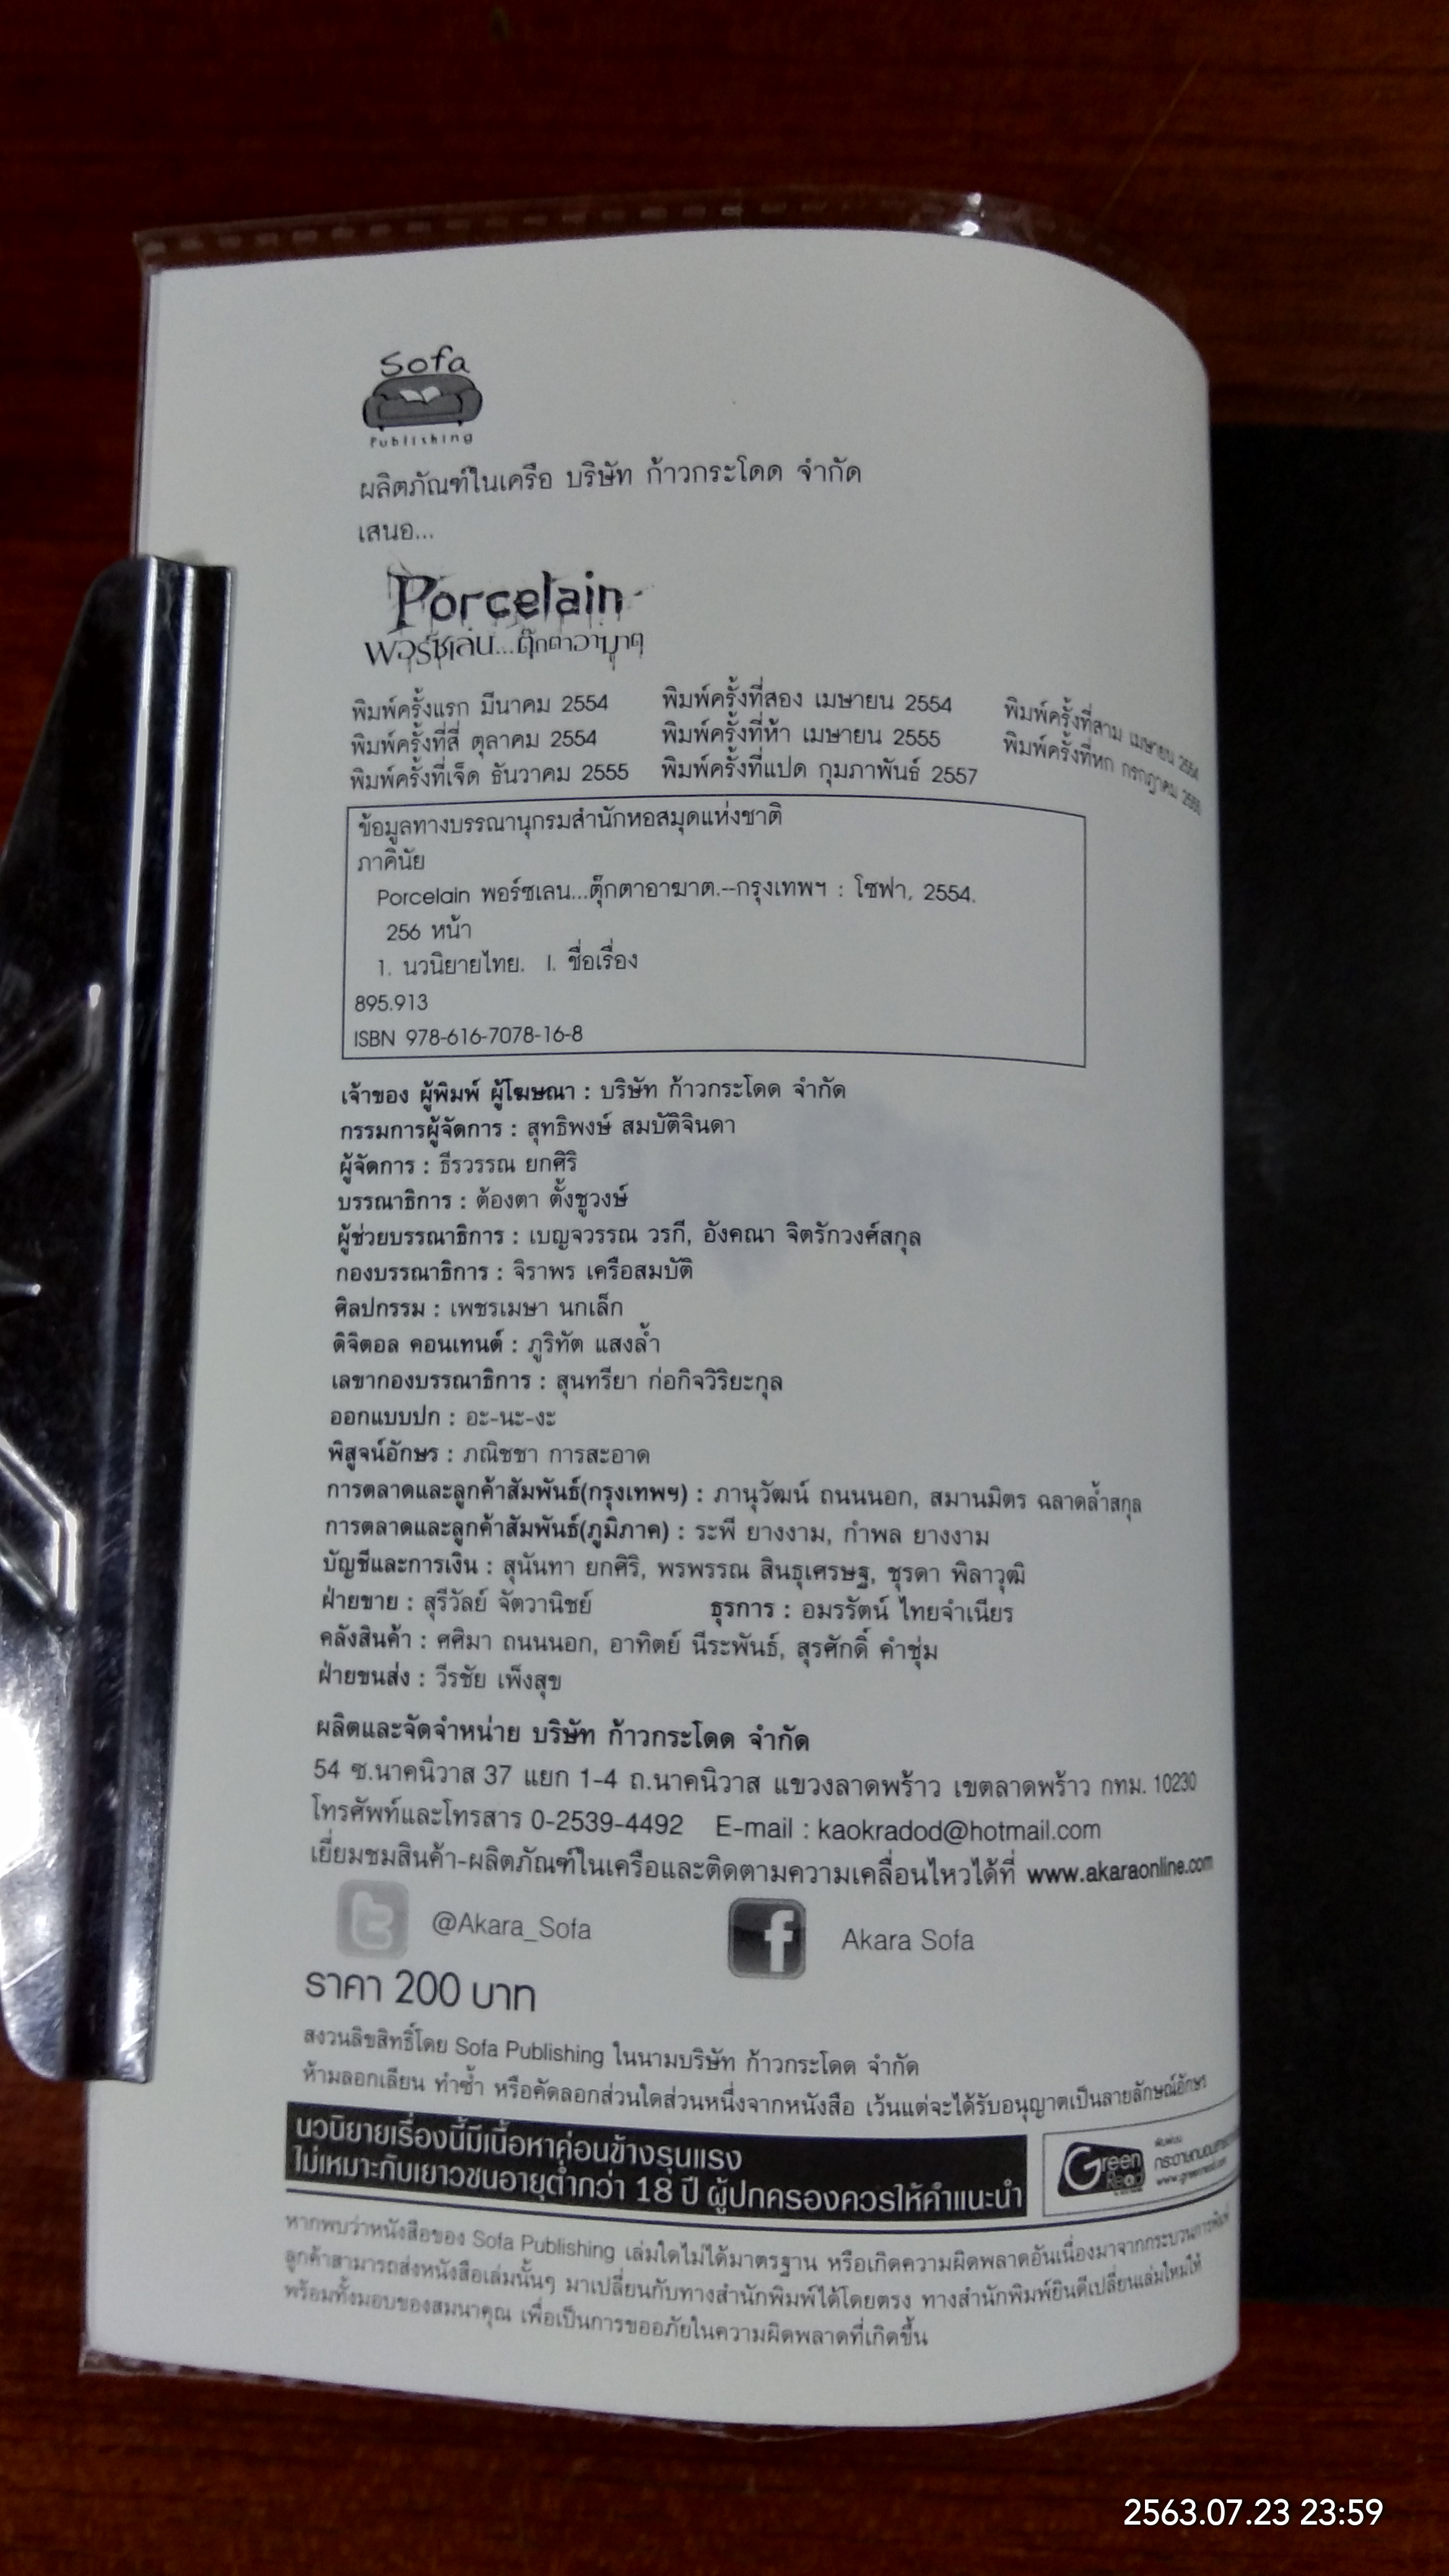 Sofa
Publishing
ผลิตภัณฑ์ในเครือ บริษัท ก้าวกระโดด จำกัด
เสนอ...
Porcelain
พอร์ซเลน...ตุ๊กตาอาฆาต
พิมพ์ครั้งแรก มีนาคม 2554 พิมพ์ครั้งที่สอง เมษายน 2554 พิมพ์ครั้งที่สาม เมษายน 2554
พิมพ์ครั้งที่สี่ ตุลาคม 2554 พิมพ์ครั้งที่ห้า เมษายน 2555 พิมพ์ครั้งที่หก กรกฎาคม 2555
พิมพ์ครั้งที่เจ็ด ธันวาคม 2555 พิมพ์ครั้งที่แปด กุมภาพันธ์ 2557
ข้อมูลทางบรรณานุกรมสำนักหอสมุดแห่งชาติ
ภาคินัย
Porcelain พอร์ซเลน...ตุ๊กตาอาฆาต.--กรุงเทพฯ : โซฟา, 2554.
256 หน้า
1. นวนิยายไทย. I. ชื่อเรื่อง
895.913
ISBN 978-616-7078-16-8
เจ้าของ ผู้พิมพ์ ผู้โฆษณา : บริษัท ก้าวกระโดด จำกัด
กรรมการผู้จัดการ : สุทธิพงษ์ สมบัติจินดา
ผู้จัดการ : ธีรวรรณ ยกศิริ
บรรณาธิการ : ต้องตา ตั้งชูวงษ์
ผู้ช่วยบรรณาธิการ : เบญจวรรณ วรกี, อังคณา จิตรักวงศ์สกุล
กองบรรณาธิการ : จิราพร เครือสมบัติ
ศิลปกรรม : เพชรเมษา นกเล็ก
ดิจิตอล คอนเทนต์ : ภูริทัต แสงล้ำ
เลขากองบรรณาธิการ : สุนทรียา ก่อกิจวิริยะกุล
ออกแบบปก : อะ-นะ-งะ
พิสูจน์อักษร : ภณิชชา การสะอาด
การตลาดและลูกค้าสัมพันธ์(กรุงเทพฯ) : ภานุวัฒน์ ถนนนอก, สมานมิตร ฉลาดล้ำสกุล
การตลาดและลูกค้าสัมพันธ์(ภูมิภาค) : ระพี ยางงาม, กำพล ยางงาม
บัญชีและการเงิน : สุนันทา ยกศิริ, พรพรรณ สินธุเศรษฐ, ชุรดา พิลาวุฒิ
ฝ่ายขาย : สุรีวัลย์ จัตวานิชย์ ธุรการ : อมรรัตน์ ไทยจำเนียร
คลังสินค้า : ศศิมา ถนนนอก, อาทิตย์ นีระพันธ์, สุรศักดิ์ คำชุ่ม
ฝ่ายขนส่ง : วีรชัย เพ็งสุข
ผลิตและจัดจำหน่าย บริษัท ก้าวกระโดด จำกัด
54 ซ.นาคนิวาส 37 แยก 1-4 ถ.นาคนิวาส แขวงลาดพร้าว เขตลาดพร้าว กทม. 10230
โทรศัพท์และโทรสาร 0-2539-4492 E-mail : kaokradod@hotmail.com
เยี่ยมชมสินค้า-ผลิตภัณฑ์ในเครือและติดตามความเคลื่อนไหวได้ที่ www.akaraonline.com
@Akara_Sofa Akara Sofa
ราคา 200 บาท
สงวนลิขสิทธิ์โดย Sofa Publishing ในนามบริษัท ก้าวกระโดด จำกัด
ห้ามลอกเลียน ทำซ้ำ หรือคัดลอกส่วนใดส่วนหนึ่งจากหนังสือ เว้นแต่จะได้รับอนุญาตเป็นลายลักษณ์อักษร
นวนิยายเรื่องนี้มีเนื้อหาค่อนข้างรุนแรง
ไม่เหมาะกับเยาวชนอายุต่ำกว่า 18 ปี ผู้ปกครองควรให้คำแนะนำ
Green Read
หากพบว่าหนังสือของ Sofa Publishing เล่มใดไม่ได้มาตรฐาน หรือเกิดความผิดพลาดอันเนื่องมาจากกระบวนการพิมพ์
ลูกค้าสามารถส่งหนังสือเล่มนั้นๆ มาเปลี่ยนกับทางสำนักพิมพ์ได้โดยตรง ทางสำนักพิมพ์ยินดีเปลี่ยนเล่มใหม่ให้
พร้อมทั้งมอบของสมนาคุณ เพื่อเป็นการขออภัยในความผิดพลาดที่เกิดขึ้น
2563.07.23 23:59